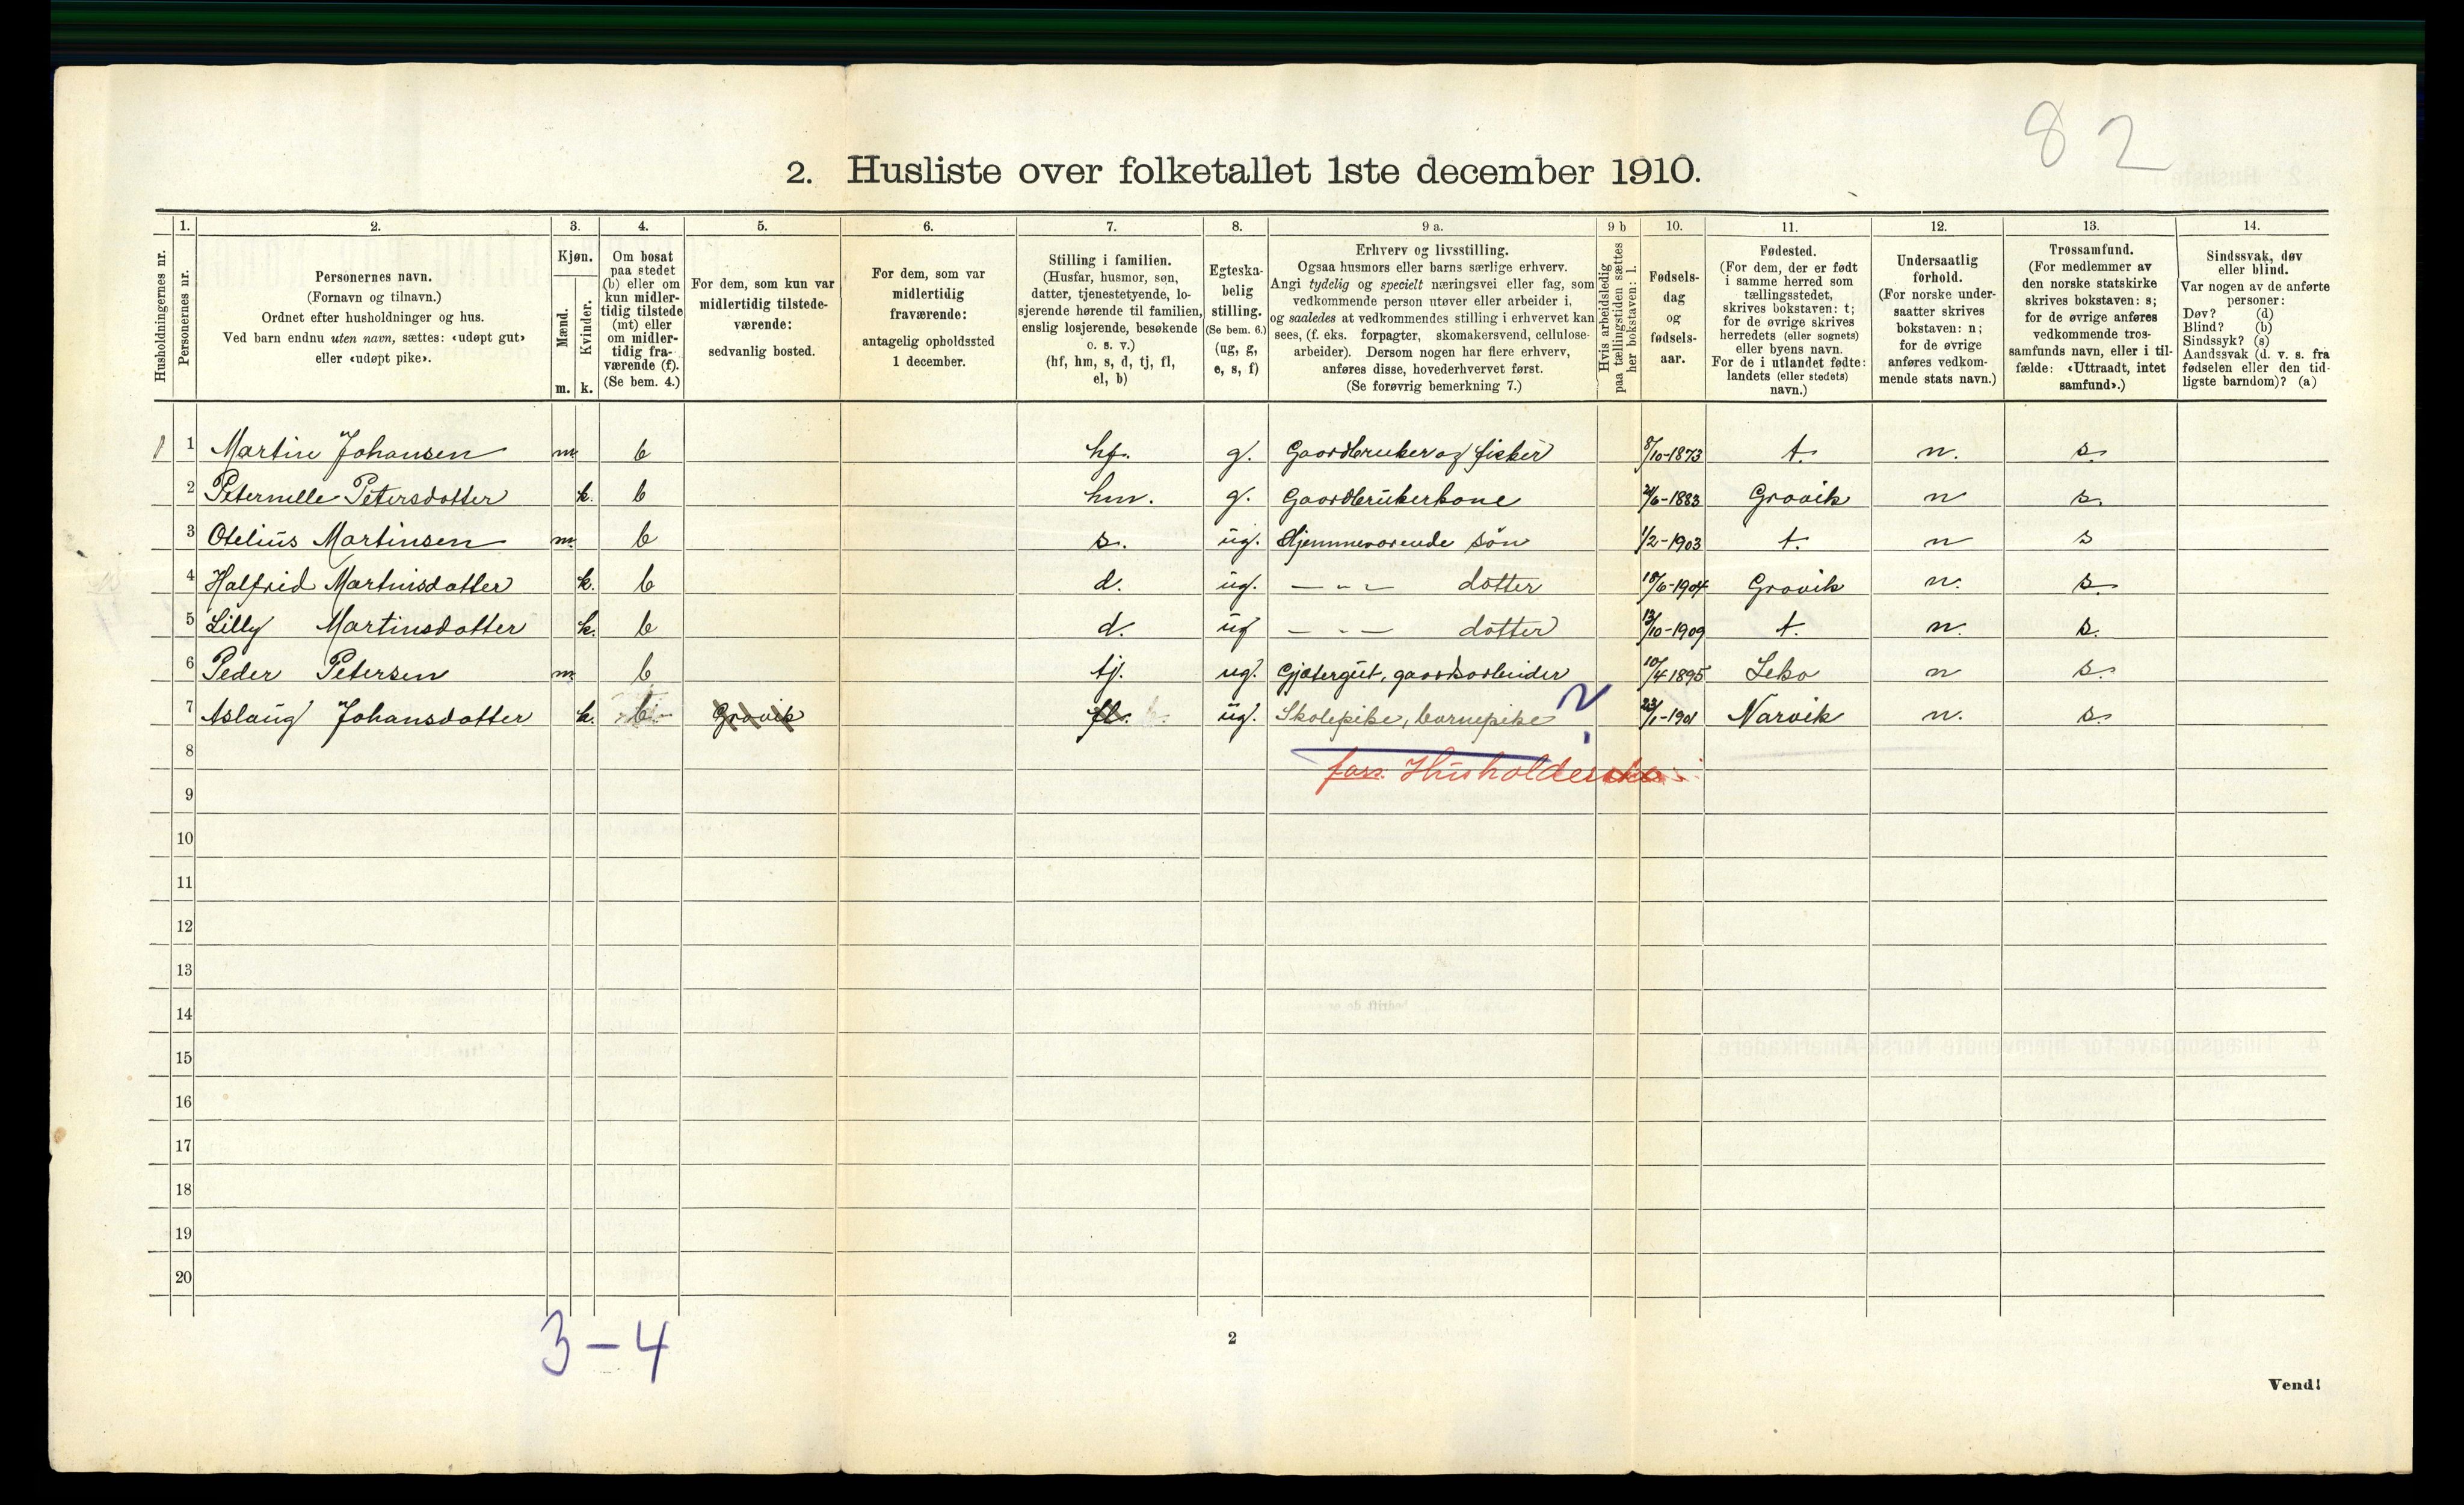 82
2. Husliste over folketallet 1ste december 1910.
Husholdningernes nr.
1.
Personernes nr.
2.
Personernes navn.
(Fornavn og tilnavn.)
Ordnet efter husholdninger og hus.
Ved barn endnu uten navn, sættes: «udøpt gut»
eller «udøpt pike».
3.
Kjøn.
Mænd.
m.
Kvinder.
k.
4.
Om bosat
paa stedet
(b) eller om
kun midler-
tidig tilstede
(mt) eller
om midler-
tidig fra-
værende (f).
(Se bem. 4.)
5.
For dem, som kun var
midlertidig tilstede-
værende:
sedvanlig bosted.
6.
For dem, som var
midlertidig
fraværende:
antagelig opholdssted
1 december.
7.
Stilling i familien.
(Husfar, husmor, søn,
datter, tjenestetyende, lo-
sjerende hørende til familien,
enslig losjerende, besøkende
o. s. v.)
(hf, hm, s, d, tj, fl,
el, b)
8.
Egteska-
belig
stilling.
(Se bem. 6.)
(ug, g,
e, s, f)
9 a.
Erhverv og livsstilling.
Ogsaa husmors eller barns særlige erhverv.
Angi tydelig og specielt næringsvei eller fag, som
vedkommende person utøver eller arbeider i,
og saaledes at vedkommendes stilling i erhvervet kan
sees, (f. eks. forpagter, skomakersvend, cellulose-
arbeider). Dersom nogen har flere erhverv,
anføres disse, hovederhvervet først.
(Se forøvrig bemerkning 7.)
9 b
Hvis arbeidsledig
paa tællingstiden sættes
her bokstaven: l.
10.
Fødsels-
dag
og
fødsels-
aar.
11.
Fødested.
(For dem, der er født
i samme herred som
tællingsstedet,
skrives bokstaven: t;
for de øvrige skrives
herredets (eller sognets)
eller byens navn.
For de i utlandet fødte:
landets (eller stedets)
navn.)
12.
Undersaatlig
forhold.
(For norske under-
saatter skrives
bokstaven: n;
for de øvrige
anføres vedkom-
mende stats navn.)
13.
Trossamfund.
(For medlemmer av
den norske statskirke
skrives bokstaven: s;
for de øvrige anføres
vedkommende tros-
samfunds navn, eller i til-
fælde: «Uttraadt, intet
samfund».)
14.
Sindssvak, døv
eller blind.
Var nogen av de anførte
personer:
Døv? (d)
Blind? (b)
Sindssyk? (s)
Aandssvak (d. v. s. fra
fødselen eller den tid-
ligste barndom)? (a)
1 1 Martin Johansen m. b hf. g. Gaardbruker og fisker 8/10-1873 t. n. s.
2 Peternelle Petersdotter k. b hm. g. Gaardbrukerkone 21/6-1883 Gravik n s.
3 Otelius Martinsen m. b s. ug. Hjemmeværende søn 1/2-1903 t. n s
4 Halfrid Martinsdotter k. b d. ug. — - — dotter 18/6-1904 Gravik n. s.
5 Lilly Martinsdotter k. b d. ug — - — dotter 13/10-1909 t. n. s.
6 Peder Petersen m b tj. ug. Gjætergut, gaardsarbeider 10/4 1895 Leka n s.
7 Aslaug Johansdotter k. b Gravik fl. ug. Skolepike, barnepike ? 23/1-1901 Narvik n. s.
8
fars. Husholderske
9
10
11
12
13
14
15
16
17
18
19
20
3-4
2
Vend!